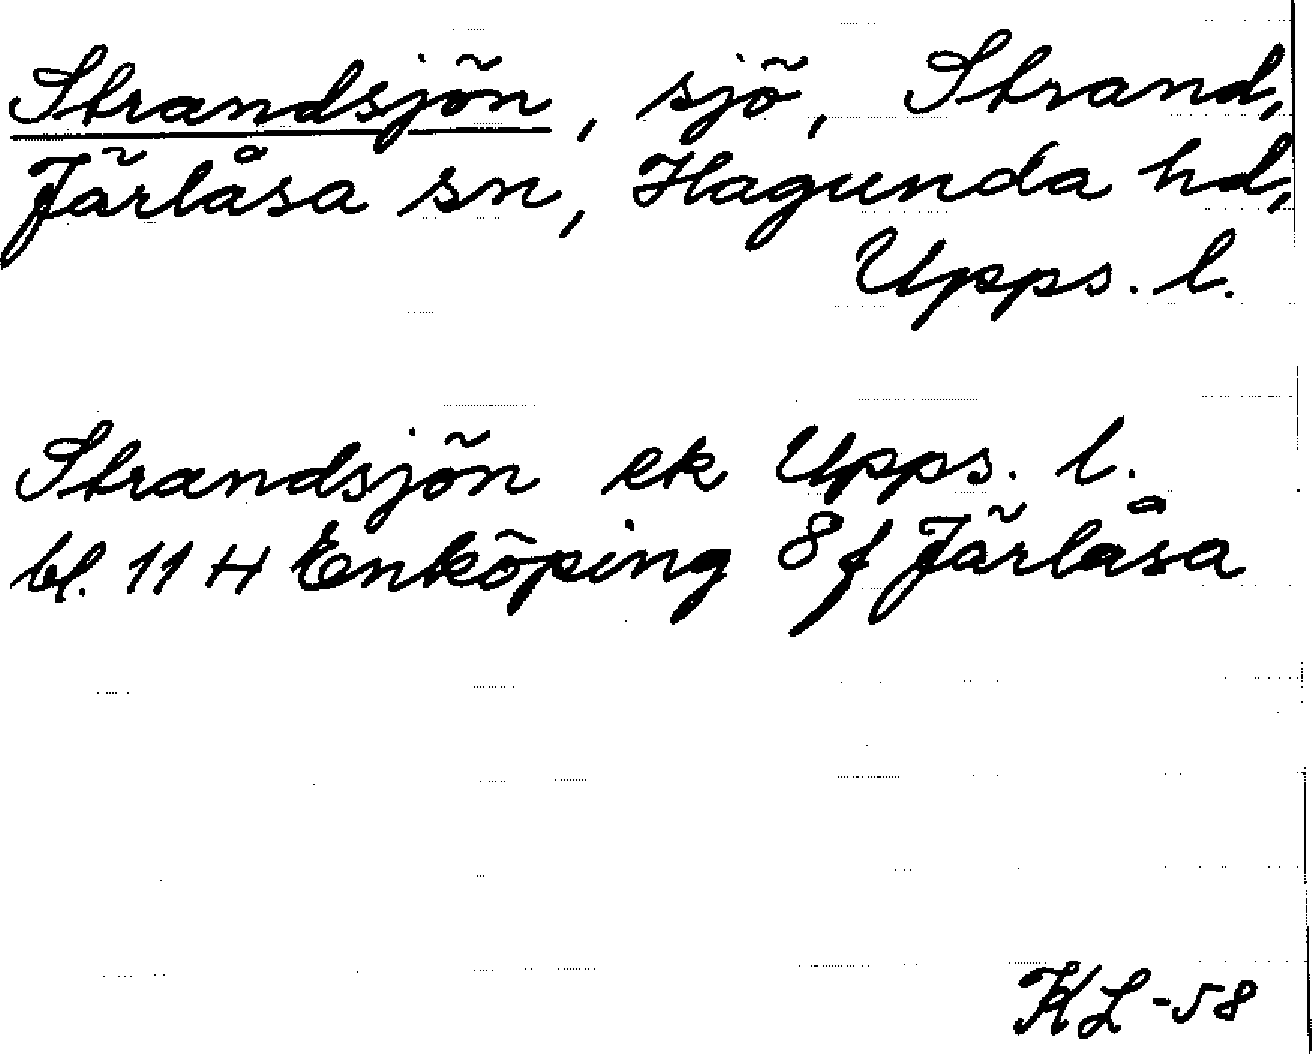 Strandsjön, sjö, Strand,
Järlåsa sn, Hagunda hd,
Upps. l.
Strandsjön ek Upps. l.
bl. 11 H Enköping 8 f Järlåsa
KL -58